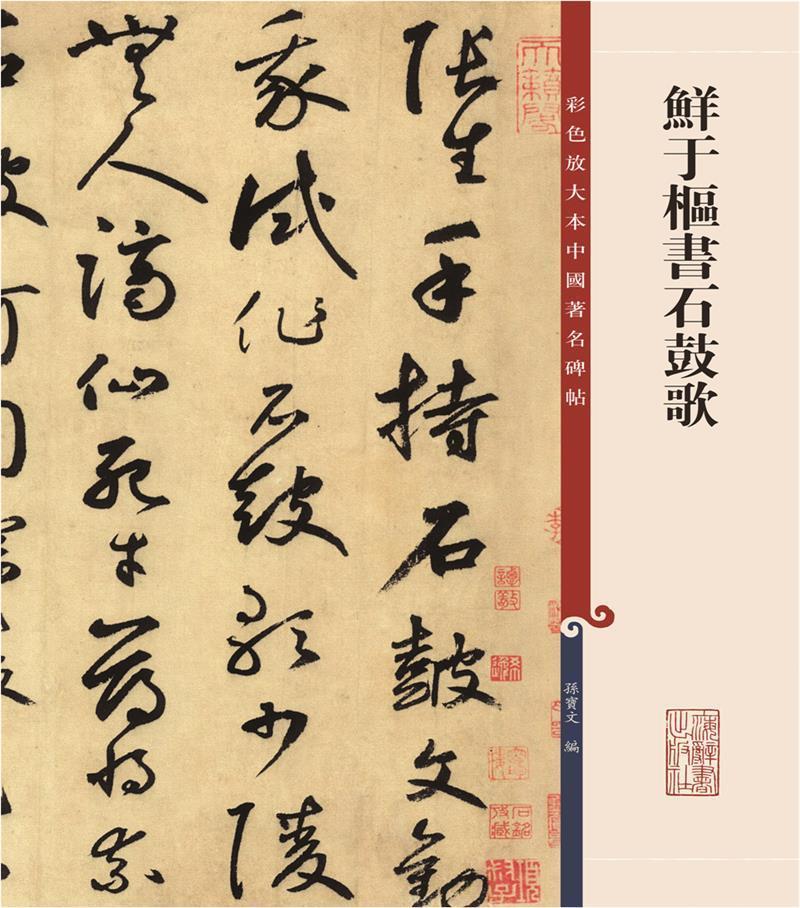 鮮于樞書石鼓歌
彩色放大本中國著名碑帖
孫寶文 編
張生手持石鼓文勸
我試作石鼓歌少陵
無人謫仙死才薄將奈
天籟閣